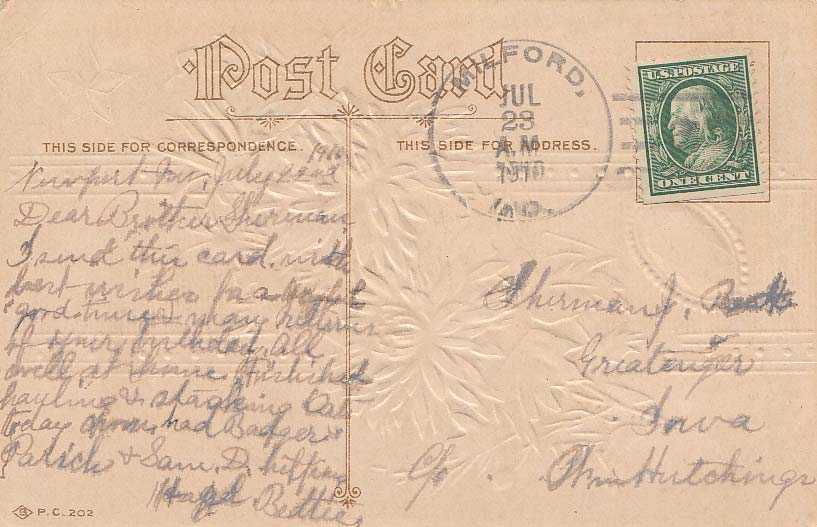 Post Card
THIS SIDE FOR CORRESPONDENCE.
THIS SIDE FOR ADDRESS.
MILFORD,
JUL
23
A.M
1910
MO.
U.S. POSTAGE
ONE CENT
1910
Newport Mo, July 22nd
Dear Brother Sherman,
I send this card with
best wishes for a
good time & many returns
of your birthday. All
well at home. Finished
hauling & stacking oats
today had Badger &
& Sam. D. helping
Bettie
Sherman J.
Iowa
C/o Wm Hutchings
P.C. 202